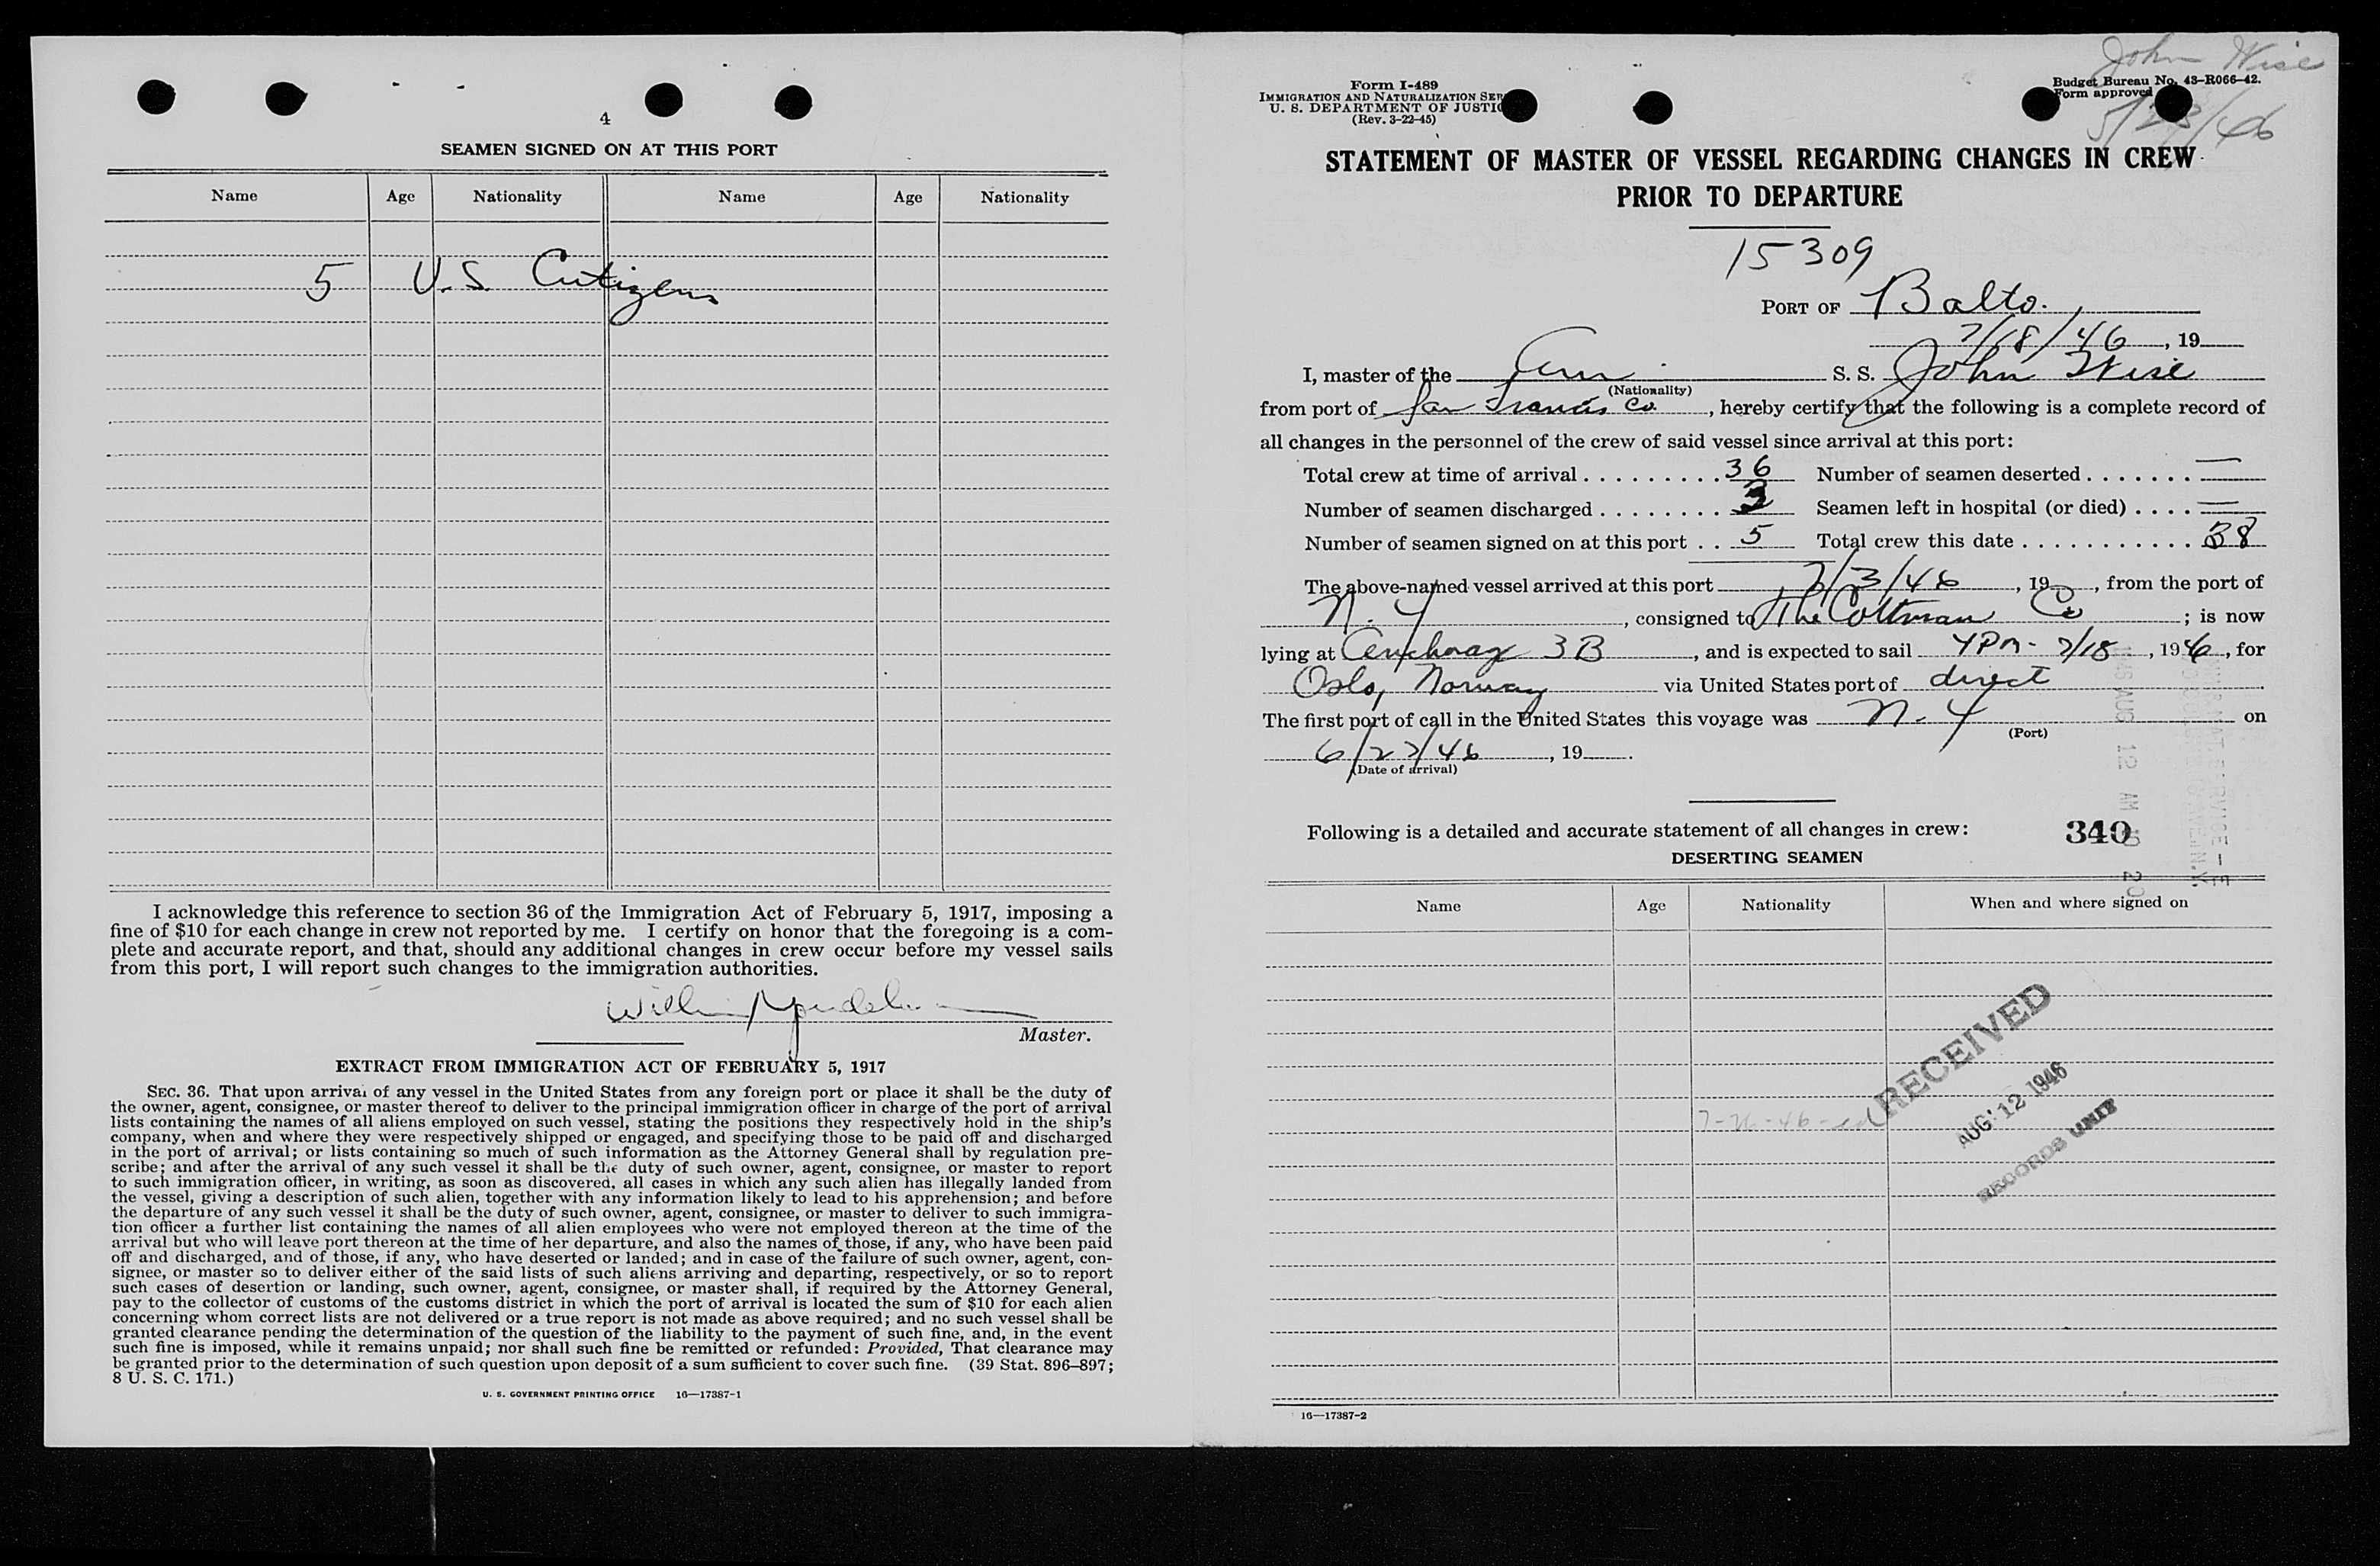 4
SEAMEN SIGNED ON AT THIS PORT
Name Age Nationality Name Age Nationality
5 U.S. Citizens
I acknowledge this reference to section 36 of the Immigration Act of February 5, 1917, imposing a
fine of $10 for each change in crew not reported by me. I certify on honor that the foregoing is a com-
plete and accurate report, and that, should any additional changes in crew occur before my vessel sails
from this port, I will report such changes to the immigration authorities.
Master.
EXTRACT FROM IMMIGRATION ACT OF FEBRUARY 5, 1917
SEC. 36. That upon arrival of any vessel in the United States from any foreign port or place it shall be the duty of
the owner, agent, consignee, or master thereof to deliver to the principal immigration officer in charge of the port of arrival
lists containing the names of all aliens employed on such vessel, stating the positions they respectively hold in the ship's
company, when and where they were respectively shipped or engaged, and specifying those to be paid off and discharged
in the port of arrival; or lists containing so much of such information as the Attorney General shall by regulation pre-
scribe; and after the arrival of any such vessel it shall be the duty of such owner, agent, consignee, or master to report
to such immigration officer, in writing, as soon as discovered, all cases in which any such alien has illegally landed from
the vessel, giving a description of such alien, together with any information likely to lead to his apprehension; and before
the departure of any such vessel it shall be the duty of such owner, agent, consignee, or master to deliver to such immigra-
tion officer a further list containing the names of all alien employees who were not employed thereon at the time of the
arrival but who will leave port thereon at the time of her departure, and also the names of those, if any, who have been paid
off and discharged, and of those, if any, who have deserted or landed; and in case of the failure of such owner, agent, con-
signee, or master so to deliver either of the said lists of such aliens arriving and departing, respectively, or so to report
such cases of desertion or landing, such owner, agent, consignee, or master shall, if required by the Attorney General,
pay to the collector of customs of the customs district in which the port of arrival is located the sum of $10 for each alien
concerning whom correct lists are not delivered or a true report is not made as above required; and no such vessel shall be
granted clearance pending the determination of the question of the liability to the payment of such fine, and, in the event
such fine is imposed, while it remains unpaid; nor shall such fine be remitted or refunded: Provided, That clearance may
be granted prior to the determination of such question upon deposit of a sum sufficient to cover such fine. (39 Stat. 896–897;
8 U. S. C. 171.)
U. S. GOVERNMENT PRINTING OFFICE 16—17387-1
John Wise
5/23/46
Form I-489
IMMIGRATION AND NATURALIZATION SER
U. S. DEPARTMENT OF JUSTIC
(Rev. 3-22-45)
Budget Bureau No. 43-R066-42.
Form approved
STATEMENT OF MASTER OF VESSEL REGARDING CHANGES IN CREW
PRIOR TO DEPARTURE
15309
PORT OF Balto.
7/18/46, 19
I, master of the Am S. S. John Wise
(Nationality)
from port of San Francisco, hereby certify that the following is a complete record of
all changes in the personnel of the crew of said vessel since arrival at this port:
Total crew at time of arrival 36 Number of seamen deserted —
Number of seamen discharged 3 Seamen left in hospital (or died) —
Number of seamen signed on at this port 5 Total crew this date 38
The above-named vessel arrived at this port 7/3/46, 19, from the port of
N. Y, consigned to The Cottman Co; is now
lying at Anchorag 3B, and is expected to sail 4PM - 7/18, 1946, for
Oslo, Norway via United States port of direct
The first port of call in the United States this voyage was N. Y on
(Port)
6/27/46, 19.
(Date of arrival)
Following is a detailed and accurate statement of all changes in crew: 340
DESERTING SEAMEN
Name Age Nationality When and where signed on
RECEIVED
AUG 12 1946
RECORDS UNIT
1946 AUG 12 AM
16—17387-2